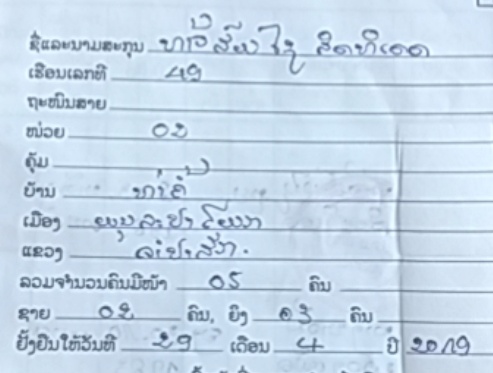 ຊື່ແລະນາມສະກຸນ ທ້າວ ສົມໃຈ
ເຮືອນເລກທີ 49
ຖະໜົນສາຍ
ໜ່ວຍ 02
ຄຸ້ມ
ບ້ານ
ເມືອງ
ແຂວງ ຈໍາປາສັກ.
ລວມຈຳນວນຄົນມີໜ້າ 05 ຄົນ
ຊາຍ 02 ຄົນ, ຍິງ 03 ຄົນ
ຢັ້ງຢືນໃຫ້ວັນທີ 29 ເດືອນ 4 ປີ 2019